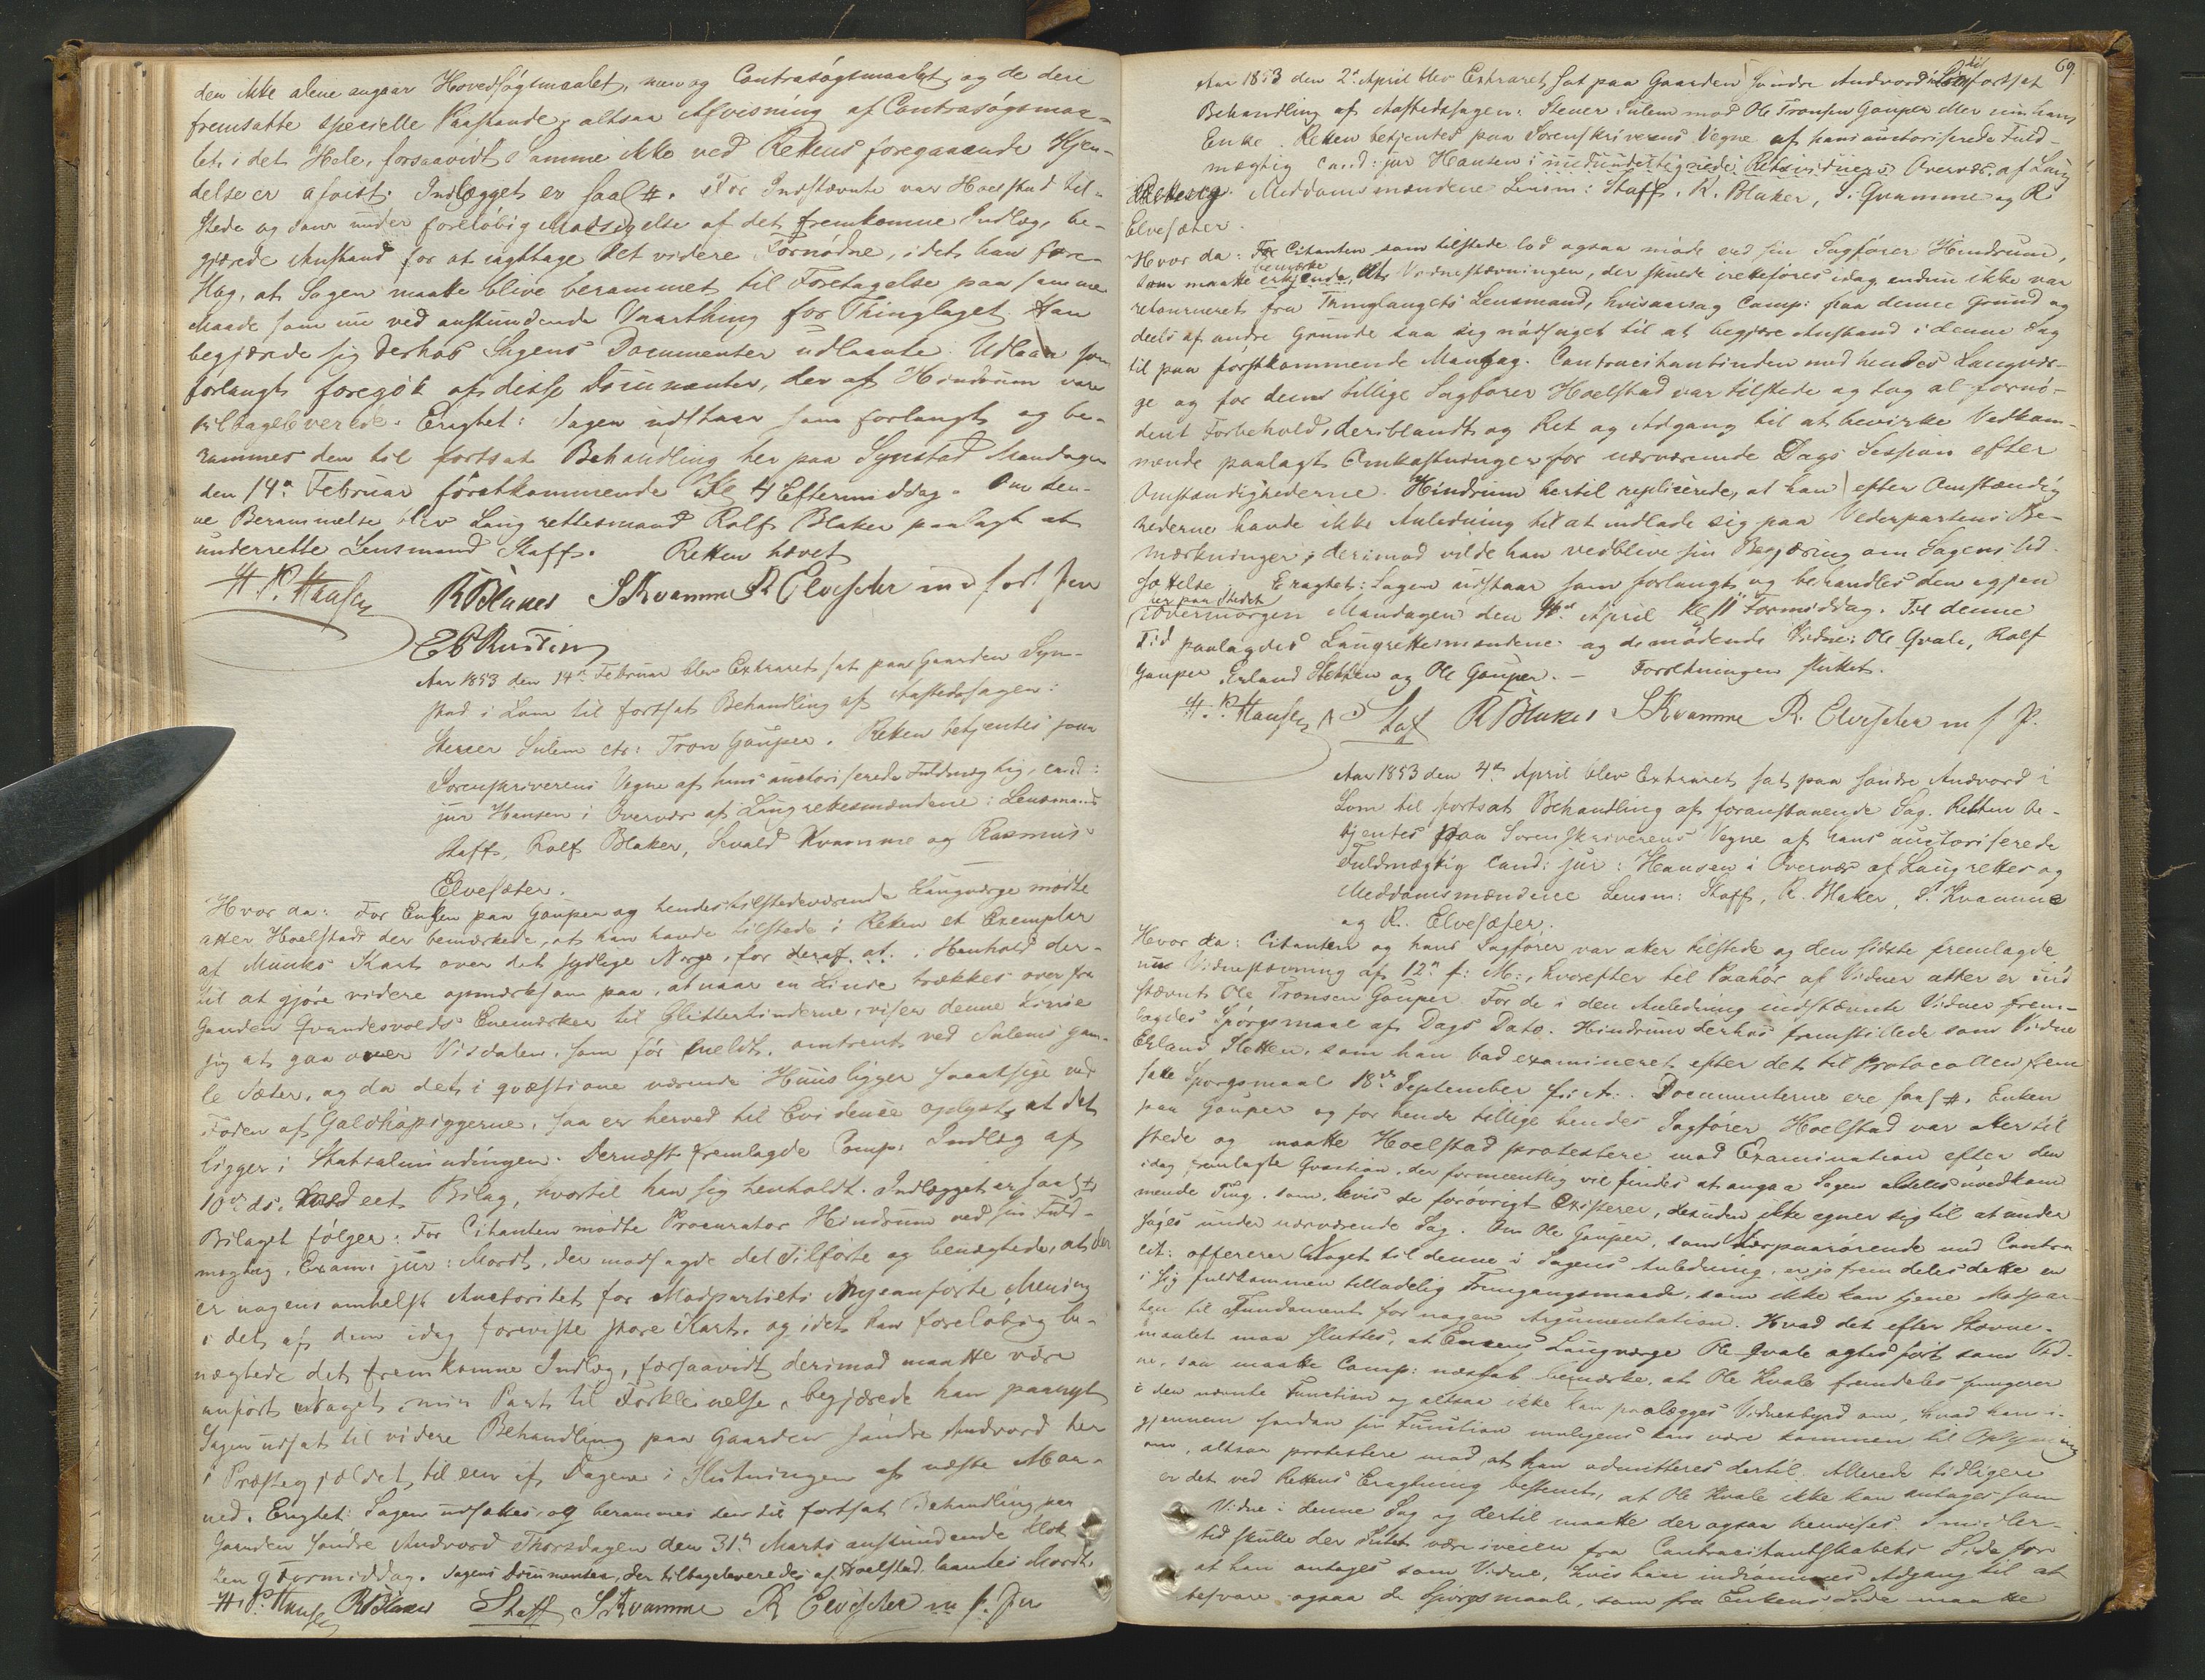 den ikke alene angaar Hovedsøgsmaalet, men og Contrasøgsmaalet og de deri
fremsatte specielle Paastande, altsaa Afvisning af Contrasøgsmaa-
let i det Hele, forsaavidt Samme ikke ved Rettens foregaaende Kjen-
delse er afvist. Indlægget er saal #. For Indstævnte var Hoelstad til-
stede og  under foreløbig Modsigelse af det fremkomne Indlæg, be-
gjærede Anstand for at iagttage det videre Fornødne, idet han fore-
slog, at Sagen maatte blive berammet til Foretagelse paa samme
Maade som nu ved anstundende Vaarthing for Thinglaget. Han
begjærede sig derhos Sagens Documenter udlaante. Udlaan som
forlangt foregik af disse Documenter, der af Hindrum vare
tilbageleverede. Eragtet: Sagen udstaar som forlangt og be-
rammes den til fortsat Behandling her paa Synstad Mandagen
den 14de Februar førstkommende Kl 4 Eftermiddag. Om den-
ne Berammelse blev Laugrettesmand Rolf Blaker paalagt at
underrette Lensmand Staff. Retten hævet
H. P. Hansen RBlaker SKvamme R Elvesæter m f Pen
Aar 1853 den 14de Februar blev Extraret sat paa Gaarden Syn-
stad i Lom til fortsat Behandling af Aastedssagen:
Stener Sulem ctr: Tron Gaupen. Retten betjentes paa
Sorenskriverens Vegne af hans auctoriserede Fuldmægtig, cand:
jur Hansen i Overvær af Laugrettesmændene: Lensmand
Staff, Rolf Blaker, Sevald Kvamme og Rasmus
Elvesæter.
Hvor da: For Enken paa Gaupen og hendes tilstedeværende Laugværge mødte
atter Hoelstad der bemærkede, at han havde tilstede i Retten et Exemplar
af Munks Kart over det sydlige Norge, for deraf at, i Henhold der-
til at gjøre videre opmærksom paa, at naar en Linie trækkes over fra
Gaarden Qvandesvolds Enemærker til Glittertinderne, viser denne Linie
sig at gaa over Visdalen, som før meldt, omtrent ved Sulems gam-
le Sæter, og da det i qvæstione værende Huus ligger saaatsige ved
Foden af Galdhøpiggerne, saa er herved til Evidence oplyst, at det
ligger i Statsalmindingen. Dernæst fremlagde Comp: Indlæg af
10de ds. med eet Bilag, hvortil han sig henholdt. Indlægget er saal #
Bilaget følger: For Citanten mødte Procurator Hindrum ved sin Fuld-
mægtig, Exam: jur: Mordt, der modsagde det Tilførte og benægtede, at der
er nogensomhelst Auctoritet for Modpartiets  anførte Mening
i det af dem idag foreviste store Kart, og idet han foreløbig be-
nægtede det fremkomne Indlæg, forsaavidt derimod maatte være
anført Noget, min Part til Forkleinelse, begjærede han paanyt
Sagen udsat til videre Behandling paa Gaarden søndre Andvord her
i Præstegjældet til een af Dagene i Slutningen af næste Maa-
ned. Eragtet: Sagen udsættes, og berammes den til fortsat Behandling paa
Gaarden søndre Andvord Thorsdagen den 31te Marts anstundende Klok
ken 9 Formiddag. Sagens Documenter, der tilbageleveredes af Hoelstad, laantes Mordt.
H. P. Hansen RBlaker Staff SKvamme R Elvesæter m f. Pen
69.
Aar 1853 den 2den April blev Extraret sat paa Gaarden Søndre Andvord i Lom til fortsat
Behandling af Aastedssagen: Stener Sulem mod Ole Tronsen Gaupen eller nu hans
Enke. Retten betjentes paa Sorenskriverens Vegne af hans auctoriserede Fuld-
mægtig cand: jur Hansen i  Overvær af Laug
 Meddomsmændene Lensm: Staff, R. Blaker, S. Qvamme og R
Elvesæter.
Hvor da: For Citanten, som tilstede lod ogsaa møde ved sin Sagfører Hindrum,
som maatte bemærke, at Vidnestævningen, der skulde irettføres idag endnu ikke var
retourneret fra Thinglaugets Lensmand, hvisaarsag Comp: paa denne Grund og
deels af andre Grunde saa sig nødsaget til at begjære Anstand i denne Sag
til paa førstkommende Mandag. Contracitantinden med hendes Laugvær-
ge og for dem tillige Sagfører Hoelstad var tilstede og tog al fornø-
dent Forbehold, deriblandt og Ret og Adgang til at bevirke Vedkom-
mende paalagt Omkostninger for nærværende Dags Session efter
Omstændighederne. Hindrum hertil replicerede, at han efter Omstændig
hederne havde ikke Anledning til at indlade sig paa Vederpartens Be-
mærkninger, derimod vilde han vedblive sin Begjæring om Sagens Ud-
sættelse. Eragtet: Sagen udstaar som forlangt og behandles den igjen
her paa Stedet
iovermorgen Mandagen den 4de April Kl 11 Formiddag. Til denne
Tid paalagdes Laugrettesmændene og de mødende Vidner: Ole Qvale, Rolf
Gaupen, Erland Sletten og Ole Gaupen. – Forretningen sluttet.
H. P. Hansen Staf RBlaker SKvamme R. Elvesæter m f P.
Aar 1853 den 4de April blev Extraret sat paa søndre Andvord i
Lom til fortsat Behandling af foranstaaende Sag. Retten be-
tjentes paa Sorenskriverens Vegne af hans auctoriserede
Fuldmægtig cand: jur: Hansen i Overvær af Laugrettes og
Meddomsmændene Lensm: Staff, R. Blaker, S. Kvamme
og R. Elvesæter.
Hvor da: Citanten og hans Sagfører var atter tilstede og den sidste fremlagde
nu Vidnestævning af 12te f: M:, hvorefter til Paahør af Vidner atter er ind
stævnt Ole Tronsen Gaupen. For de i den Anledning indstævnte Vidner frem-
lagdes Spørgsmaal af Dags Dato. Hindrum derhos fremstillede som Vidne
Erland Sletten, som han bad examineret efter det til Protocollen frem
satte Spørgsmaal 18de September f: A:. Documenterne ere saal #. Enken
paa Gaupen og for hende tillige hendes Sagfører Hoelstad var atter til
stede og maatte Hoelstad protestere mod Examination efter den
idag fremlagte Qvæstion, der formeentlig vil findes at angaa Sagen aldeles uvedkom
mende Ting, som, hvis de forøvrigt existerer, desuden ikke egner sig til at under
søges under nærværende Sag. Om Ole Gaupen, som Nærpaarørende ved Contra
cit: offererer Noget til denne i Sagens Anledning, er jo fremdeles dette en
i sig fuldkommen tilladelig Fremgangsmaade, som ikke kan tjene Modpar-
ten til Fundament for nogen Argumentation. Hvad det efter Stævne-
maalet maa sluttes, at Enkens Laugværge Ole Qvale agtes ført som Vid-
ne, saa maatte Comp: næstefter bemærke, at Ole Kvale fremdeles fungerer
i den nævnte Function og altsaa ikke kan paalægges Vidnesbyrd om, hvad han i-
gjennem saadan sin Function muligens kan være kommen til Oplysning
om, altsaa protestere mod, at han admitteres dertil. Allerede tidligere
er det ved Rettens Eragtning bestemt, at Ole Kvale ikke kan antages som
Vidne i denne Sag og dertil maatte der ogsaa henvises. Imidler-
tid skulle der Intet være iveien fra Contracitantskabets Side for
at han antages som Vidne, hvis han indrømmes Adgang til at
besvare ogsaa de Spørgsmaal, som fra Enkens Side maatte